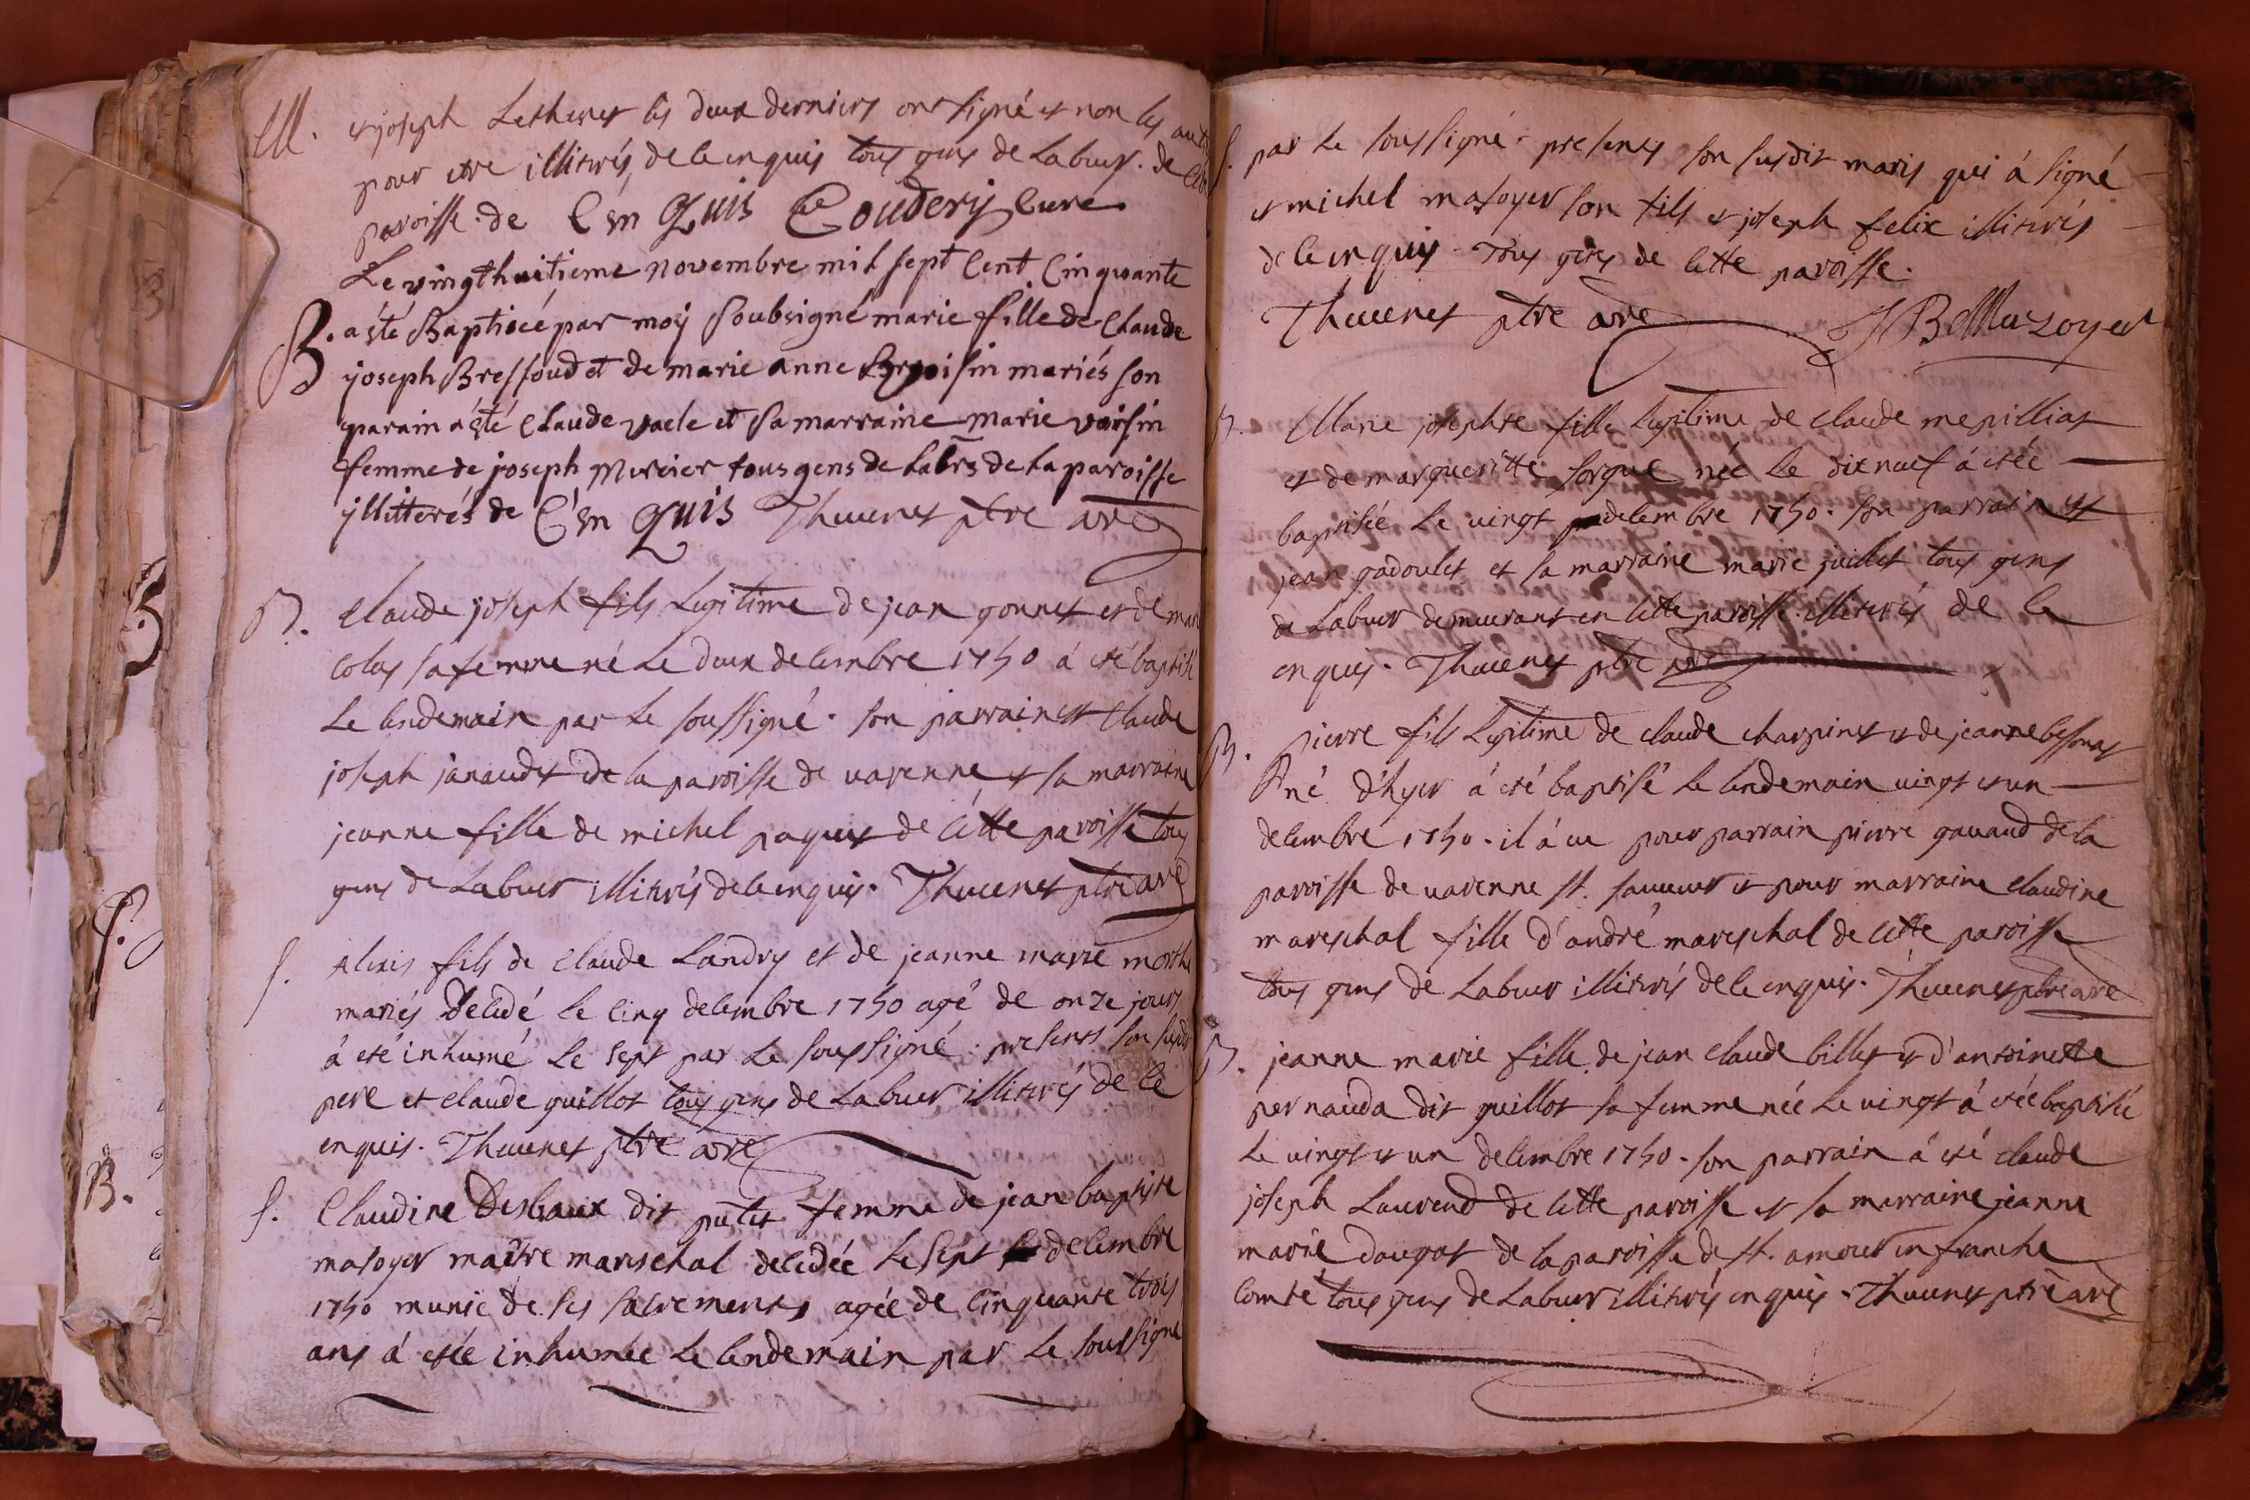 M. et joseph Lethenet les deux derniers ont signé et non les aut
pour etre illitirés, de ce enquis tous gens de Labeur. de
paroisse. de C'en Quis Couderij Cure
Le vingthuitieme novembre mil sept Cent Cinquante
B. a été Baptiséé par moÿ Soubsigné marie fille de Claude
joseph Bressoud et de marie anne mariés son
parain a été Claude vacle et sa marraine marie voisin
femme de joseph Mercier tous gens de Labrs de La paroisse
jllitterés de C'en Quis Thuuenet ptre
B. Claude joseph fils Legitime de jean gonnet et de mar
Colas sa femme né Le deux decembre 1750 á eté baptisé
Le lendemain par Le soussigné. son parrain est Claude
joseph janaudet de la paroisse de uarenne et sa marraine
jeanne fille de michel paquet de cétte paroisse tous
gens de Labeur illitirés de ce enquis. Thuuenet ptre
S. Alexis fils de Claude Landry et de jeanne marie
mariés decedé le cinq decembre 1750 agé de onze jours
á eté inhumé Le sept par Le soussigné. presents son
pere et claude guillot tous gens de Labeur illitirés de ce
enquis. Thuuenet ptre
S. Claudine Desbaux dit putet femme de jean baptiste
masoyer maître mareschal decedée Le sept decembre
1750 munie de ses sacrements agée de cinquante trois
ans á etée inhumée Le lendemain par Le soussigné
S. par Le soussigné. presents son susdit maris qui á signé
et michel masoyer son fils et joseph felix illitirés
de ce enquis. Tous gens de cette paroisse.
Thuuenet ptre JB Mazoyer
B. Marie josephte fille Legitime de claude mepilliat
et de margueritte sorgue née Le dixneuf á etée
baptisée Le vingt decembre 1750. son parrain est
jean gadoulet et sa marraine marie juillet tous gens
de Labeur demeurant en cette paroisse. illitirés de ce
enquis. Thuuenet ptre
B. Pierre fils Legitime de claude charpinet et de jeanne
né d'hyer á eté baptisé Le lendemain vingt et un
decembre 1750. il á eu pour parrain pierre gauaud de la
paroisse de uarenne st. sauueur et pour marraine claudine
mareschal fille d'andré mareschal de cette paroisse
tous gens de Labeur illitirés de ce enquis. Thuuenet ptre
B. jeanne marie fille de jean claude billet et d'antoinette
pernauda dit guillot sa femme née Le vingt á etée baptisée
Le vingt et un decembre 1750. son parrain á eté claude
joseph Laurend de cette paroisse et sa marraine jeanne
marie daugat de la paroisse de st. amour en franche
Comté tous gens de Labeur illitirés enquis. Thuuenet ptre